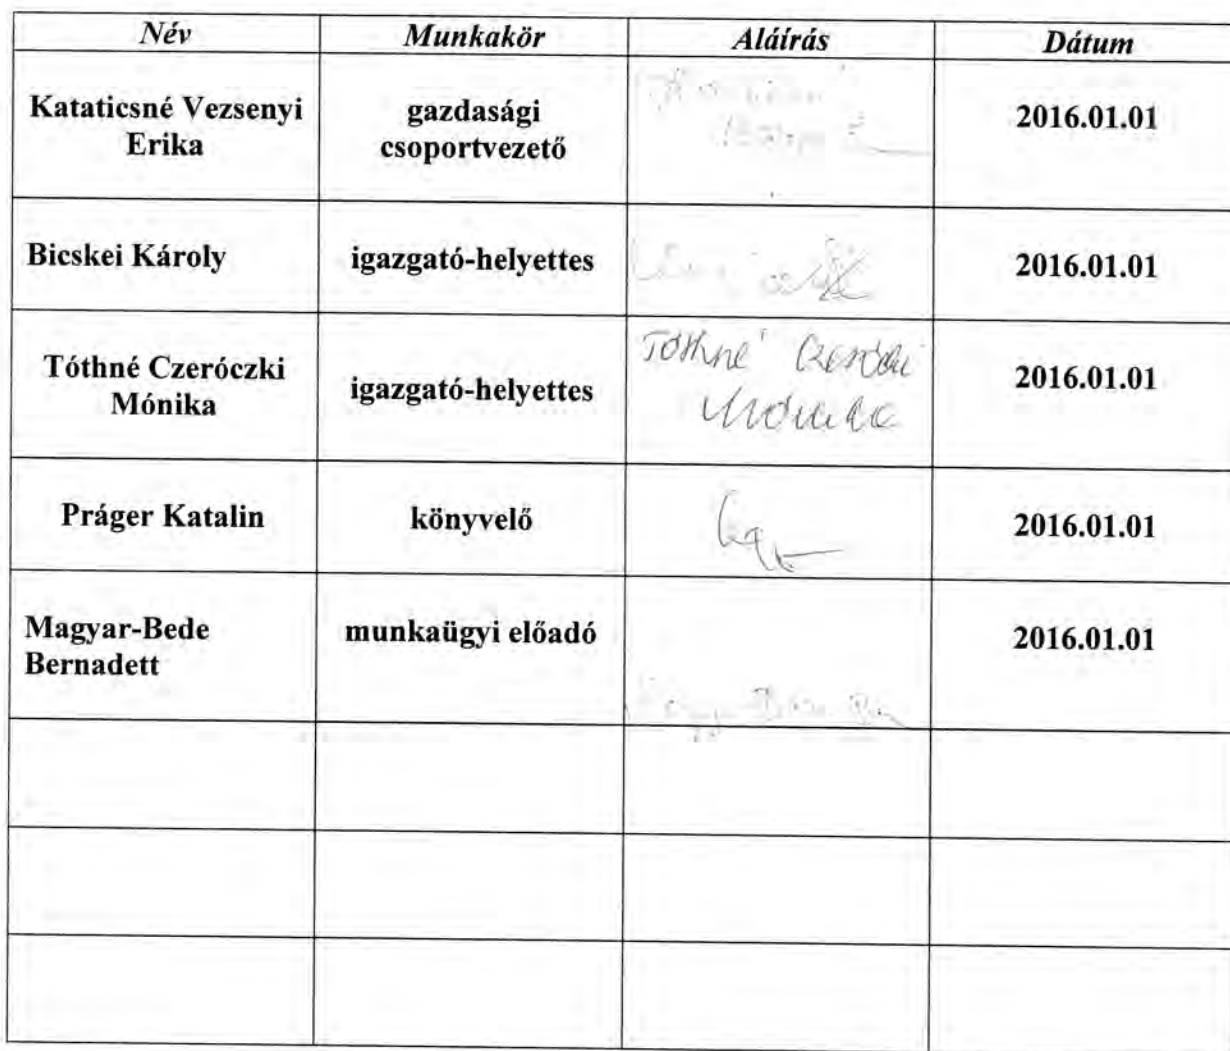 Név Munkakör Aláírás Dátum
Kataticsné Vezsenyi
Erika
gazdasági
csoportvezető
2016.01.01
Bicskei Károly igazgató-helyettes 2016.01.01
Tóthné Czeróczki
Mónika
igazgató-helyettes
Tóthné
Mónika
2016.01.01
Práger Katalin könyvelő 2016.01.01
Magyar-Bede
Bernadett
munkaügyi előadó
2016.01.01